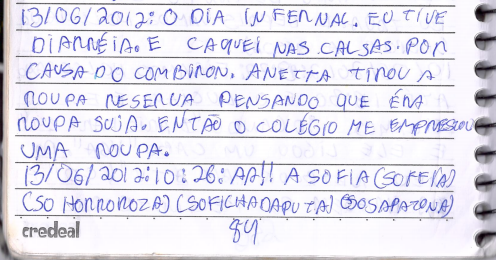 13/06/2012: O DIA INFERNAL. EU TIVE
DIARRÉIA. E CAQUEI NAS CALSAS. POR
CAUSA DO COMBIRON. A NETTA TIROU A
ROUPA RESERVA PENSANDO QUE ERA
ROUPA SUJA. ENTÃO O COLÉGIO ME EMPRESTOU
UMA ROUPA.
13/06/2012: 10:26: AA!! A SOFIA (SOFEIA)
(SO HORROROZA) (SOFICHADAPUTA) (SOSAPATONA)
credeal
84